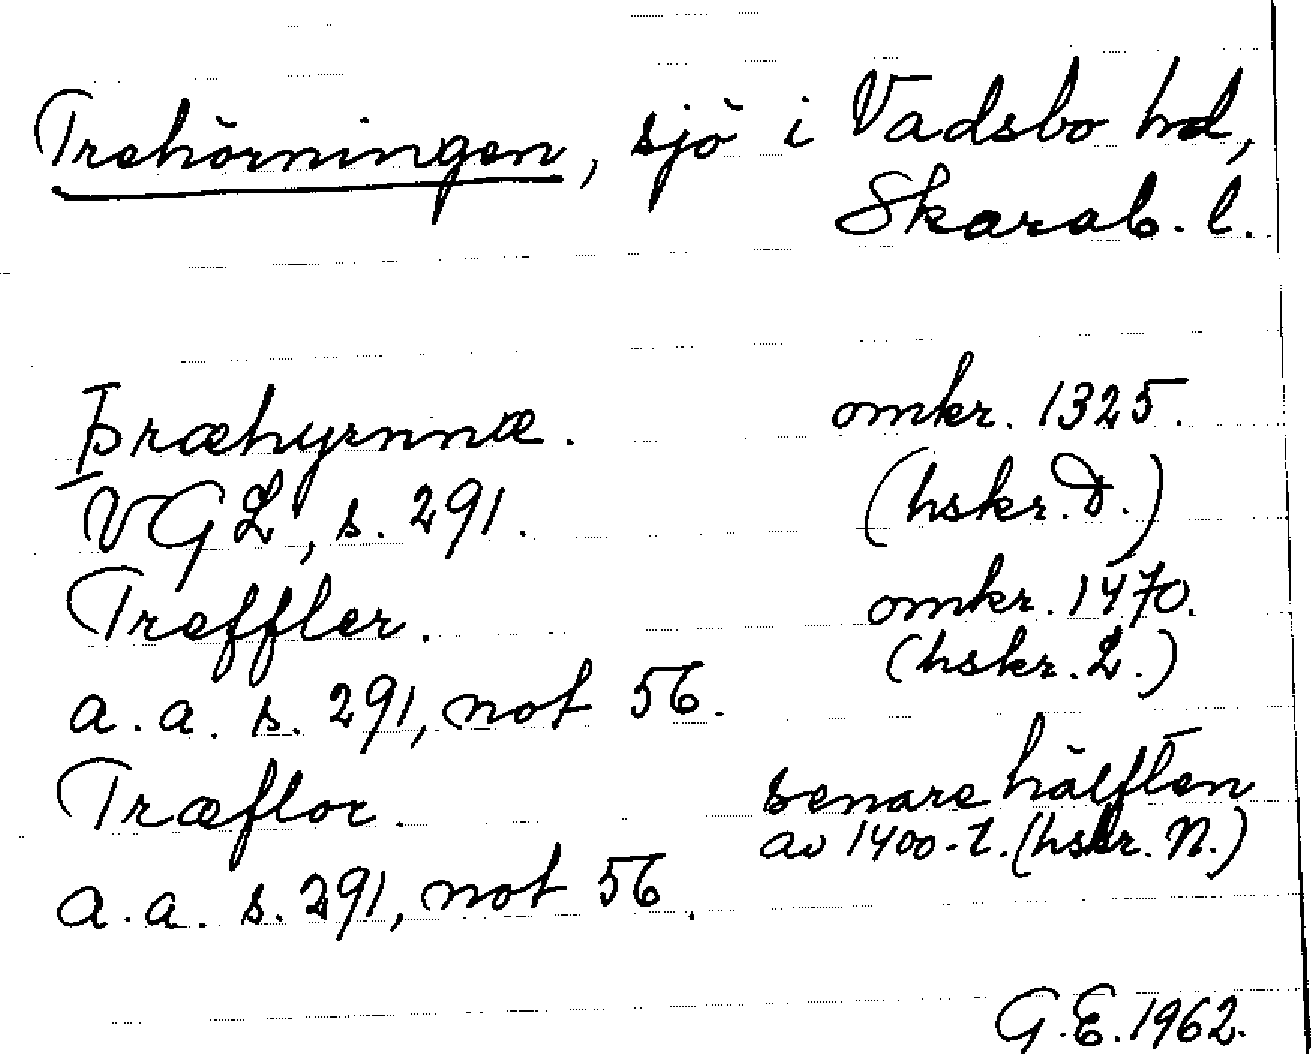 Trehörningen, sjö i Vadsbo hd,
Skarab. l.
Þræhyrnnæ. omkr. 1325.
VGL, s. 291. (hskr. D.)
Treffler. omkr. 1470.
a.a. s. 291, not 56. (hskr. L.)
Træflor. senare hälften
av 1400-t. (hskr. N.)
a.a. s. 291, not 56.
G.E. 1962.